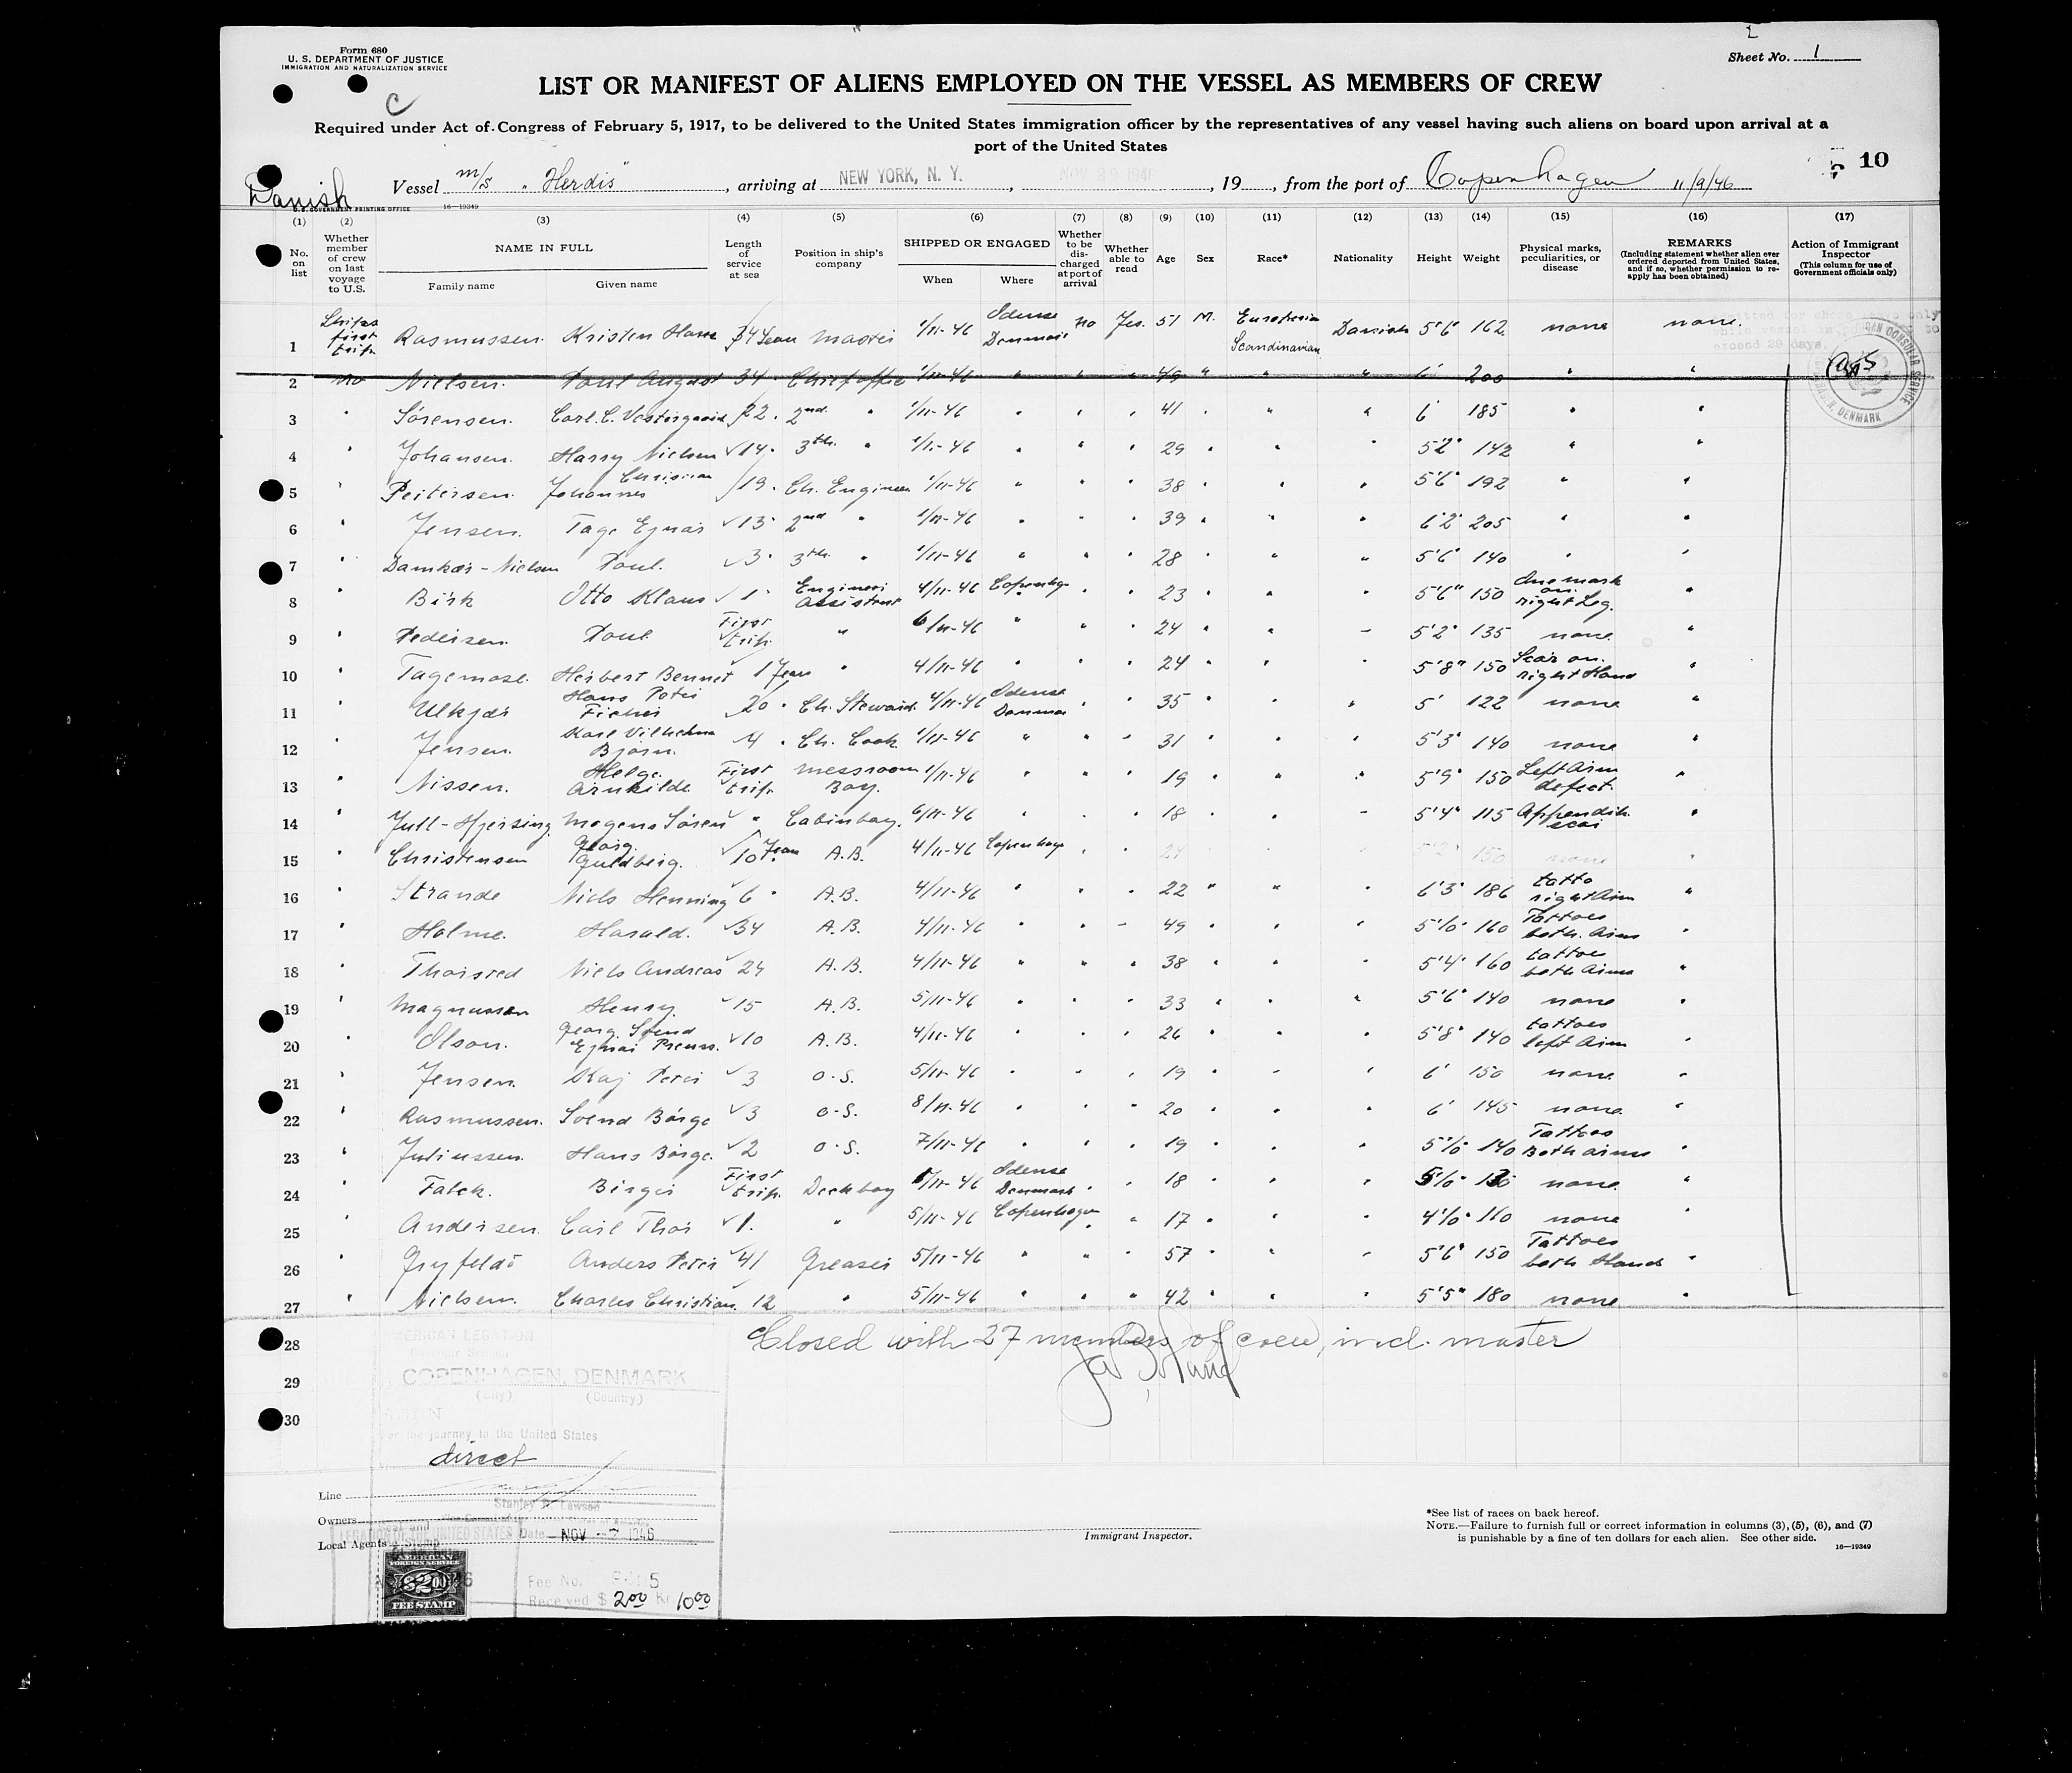 Form 680
U. S. DEPARTMENT OF JUSTICE
IMMIGRATION AND NATURALIZATION SERVICE
Sheet No. 1
LIST OR MANIFEST OF ALIENS EMPLOYED ON THE VESSEL AS MEMBERS OF CREW
Required under Act of Congress of February 5, 1917, to be delivered to the United States immigration officer by the representatives of any vessel having such aliens on board upon arrival at a
port of the United States
10
Danish Vessel m/s "Herdis", arriving at NEW YORK, N. Y., NOV 29 1946, 19, from the port of Copenhagen 11/9/46
U.S. GOVERNMENT PRINTING OFFICE 16—19349
(1) (2) (3) (4) (5) (6) (7) (8) (9) (10) (11) (12) (13) (14) (15) (16) (17)
No. on list
Whether member of crew on last voyage to U.S.
NAME IN FULL
Family name Given name
Length of service at sea
Position in ship's company
SHIPPED OR ENGAGED
When Where
Whether to be discharged at port of arrival
Whether able to read
Age Sex Race* Nationality Height Weight
Physical marks, peculiarities, or disease
REMARKS
(Including statement whether alien ever ordered deported from United States, and if so, whether permission to reapply has been obtained)
Action of Immigrant Inspector
(This column for use of Government officials only)
1 Ships first trip Rasmussen Kristen Hans 34 Years Master 1/11-46 Odense Denmark no Yes. 51 M. European Scandinavian Danish 5'6" 162 none none.
2 no Nielsen. Poul August 34 " Chief officer 1/11-46 " " " 49 " " " 6' 200 " "
3 " Sørensen. Carl. C. Vestergaard 22 . 2nd. " 1/11-46 " " " 41 " " " 6' 185 " "
4 " Johansen. Harry Nielsen 14 " 3th. " 1/11-46 " " " 29 " " " 5'2" 142 " "
5 " Peitersen. Johannes Christian 19 . Ch. Engineer 1/11-46 " " " 38 " " " 5'6" 192 " "
6 " Jensen. Tage Ejnar 13 " 2nd " 1/11-46 " " " 39 " " " 6'2" 205 " "
7 " Damkær-Nielsen Poul. 3 " 3th. " 1/11-46 " " " 28 " " " 5'6" 140 " "
8 " Birk Otto Klaus 1 " Engineer Assistent 4/11-46 Copenhagen " " 23 " " " 5'6" 150 One mark on right Leg. "
9 " Pedersen. Poul First trip. " 6/11-46 " " " 24 " " " 5'2" 135 none "
10 " Tagemose. Herbert Bennet 1 Year " 4/11-46 " " " 24 " " " 5'8" 150 Scar on right Hand "
11 " Ulkjær Hans Peter 20 " Ch. Steward. 4/11-46 Odense Denmark " " 35 " " " 5' 122 none "
12 " Jensen. Karl Vilhelm Bjørn. 4 " Ch. Cook 1/11-46 " " " 31 " " " 5'3" 140 none "
13 " Nissen. Helge. First trip. messroom Boy. 1/11-46 " " " 19 " " " 5'9" 150 Left Arm defect. "
14 " Jull-Hjersing Mogens Søren " Cabinboy. 6/11-46 " " " 18 " " " 5'4" 115 Appendix scar "
15 " Christensen Georg. Guldberg. 10 Years A.B. 4/11-46 Copenhagen " " " " " 150 none "
16 " Strande Niels Henning 6 " A.B. 4/11-46 " " " 22 " " " 6'3" 186 tatto right Arm "
17 " Holme. Harald. 34 A.B. 4/11-46 " " " 49 " " " 5'10" 160 Tattoes both. Arms "
18 " Thorsted Niels Andreas 24 A.B. 4/11-46 " " " 38 " " " 5'4" 160 tattoe both Arms "
19 " Magnussen Henry. 15 A.B. 5/11-46 " " " 33 " " " 5'6" 140 none "
20 " Olson. Georg. Svend Ejnar 10 A.B. 4/11-46 " " " 26 " " " 5'8" 140 tattoes left Arm "
21 " Jensen. Kaj Peter 3 O.S. 5/11-46 " " " 19 " " " 6' 150 none "
22 " Rasmussen. Svend Børge 3 O.S. 8/11-46 " " " 20 " " " 6' 145 none "
23 " Juliussen. Hans Børge. 2 O.S. 7/11-46 " " " 19 " " " 5'10" 140 Tattoes Both arms "
24 " Falck. Birger First trip. Deckboy 1/11-46 Odense Denmark " " 18 " " " 5'10" none "
25 " Andersen Carl Thor 1. " 5/11-46 Copenhagen " " 17 " " " 4'10" 110 none "
26 " Anders Peter 41 Greaser 5/11-46 " " " 57 " " " 5'6" 150 Tattoes both Hands "
27 " Nielsen. Charles Christian. 12 " 5/11-46 " " " 42 " " " 5'5" 180 none "
28 Closed with 27 members of crew, incl. master
29
30
exceed 29 days.
CONSULAR SERVICE
DENMARK
AMERICAN LEGATION
Consular Section
COPENHAGEN, DENMARK
(City) (Country)
for the journey to the United States
direct
Line
Stanley Lawson
Owners
LEGATION OF THE UNITED STATES Date NOV -7 1946
Local Agents
AMERICAN
FOREIGN SERVICE
$2.00
FEE STAMP
Fee No.
Received $ 2.00 Kr 10.00
Immigrant Inspector.
*See list of races on back hereof.
NOTE.—Failure to furnish full or correct information in columns (3), (5), (6), and (7)
is punishable by a fine of ten dollars for each alien. See other side.
16—19349